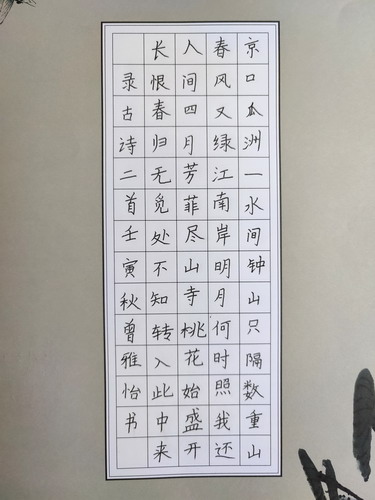 京口瓜洲一水间钟山只隔数重山
春风又绿江南岸明月何时照我还
人间四月芳菲尽山寺桃花始盛开
长恨春归无觅处不知转入此中来
录古诗二首壬寅秋曾雅怡书